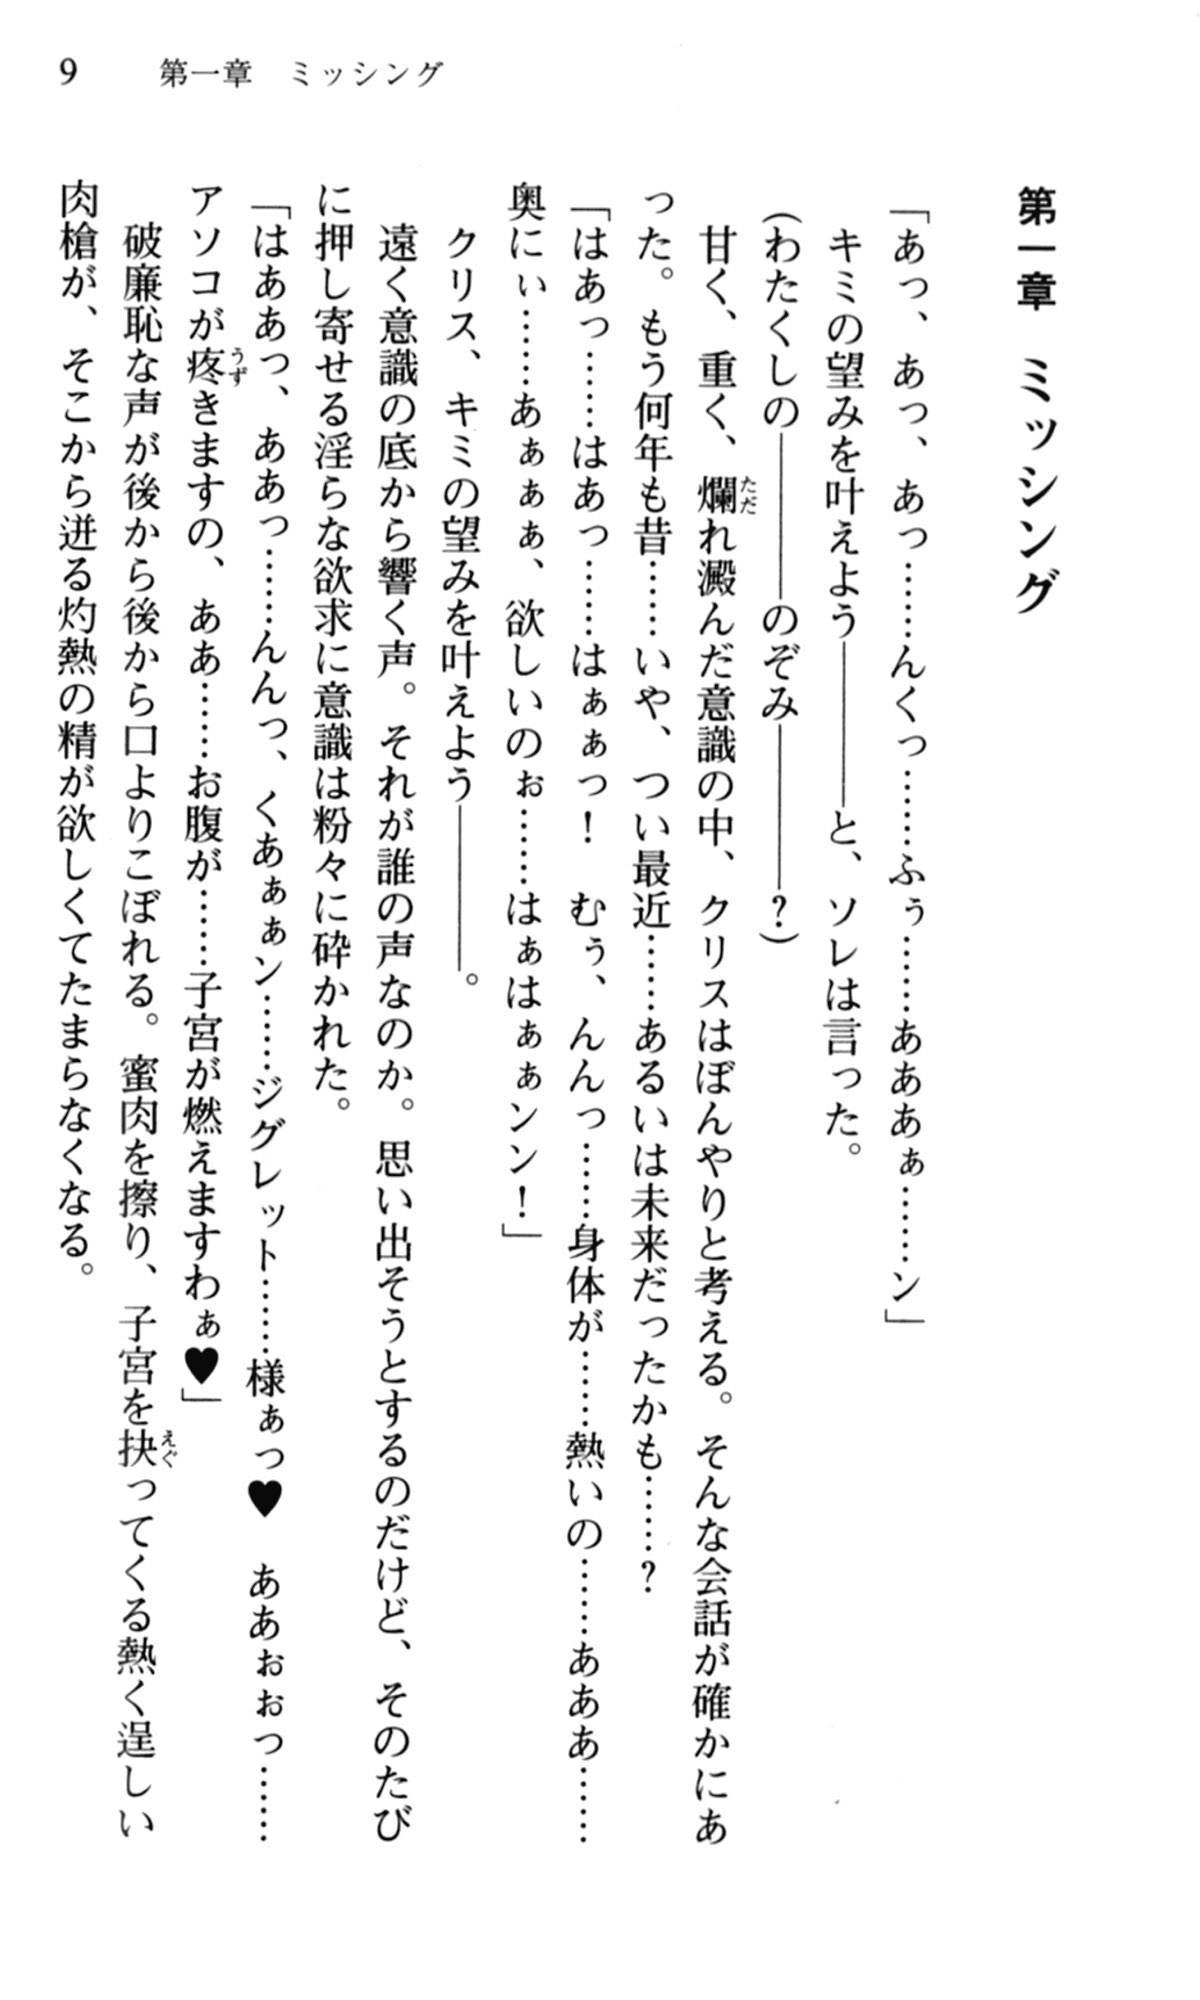 9 第一章 ミッシング
第一章 ミッシング
「あっ、あっ、あっ……んくっ……ふぅ……あああぁ……ン」
キミの望みを叶えよう――――と、ソレは言った。
(わたくしの――――のぞみ――――?)
甘く、重く、爛れ澱んだ意識の中、クリスはぼんやりと考える。そんな会話が確かにあ
った。もう何年も昔……いや、つい最近……あるいは未来だったかも……?
「はあっ……はあっ……はぁぁっ! むぅ、んんっ……身体が……熱いの……あああ……
奥にぃ……あぁぁぁ、欲しいのぉ……はぁはぁぁンン!」
クリス、キミの望みを叶えよう――――。
遠く意識の底から響く声。それが誰の声なのか。思い出そうとするのだけど、そのたび
に押し寄せる淫らな欲求に意識は粉々に砕かれた。
「はああっ、ああっ……んんっ、くあぁぁン……ジグレット……様ぁっ♥ ああぉぉっ……
アソコが疼きますの、ああ……お腹が……子宮が燃えますわぁ♥」
破廉恥な声が後から後から口よりこぼれる。蜜肉を擦り、子宮を抉ってくる熱く逞しい
肉槍が、そこから迸る灼熱の精が欲しくてたまらなくなる。